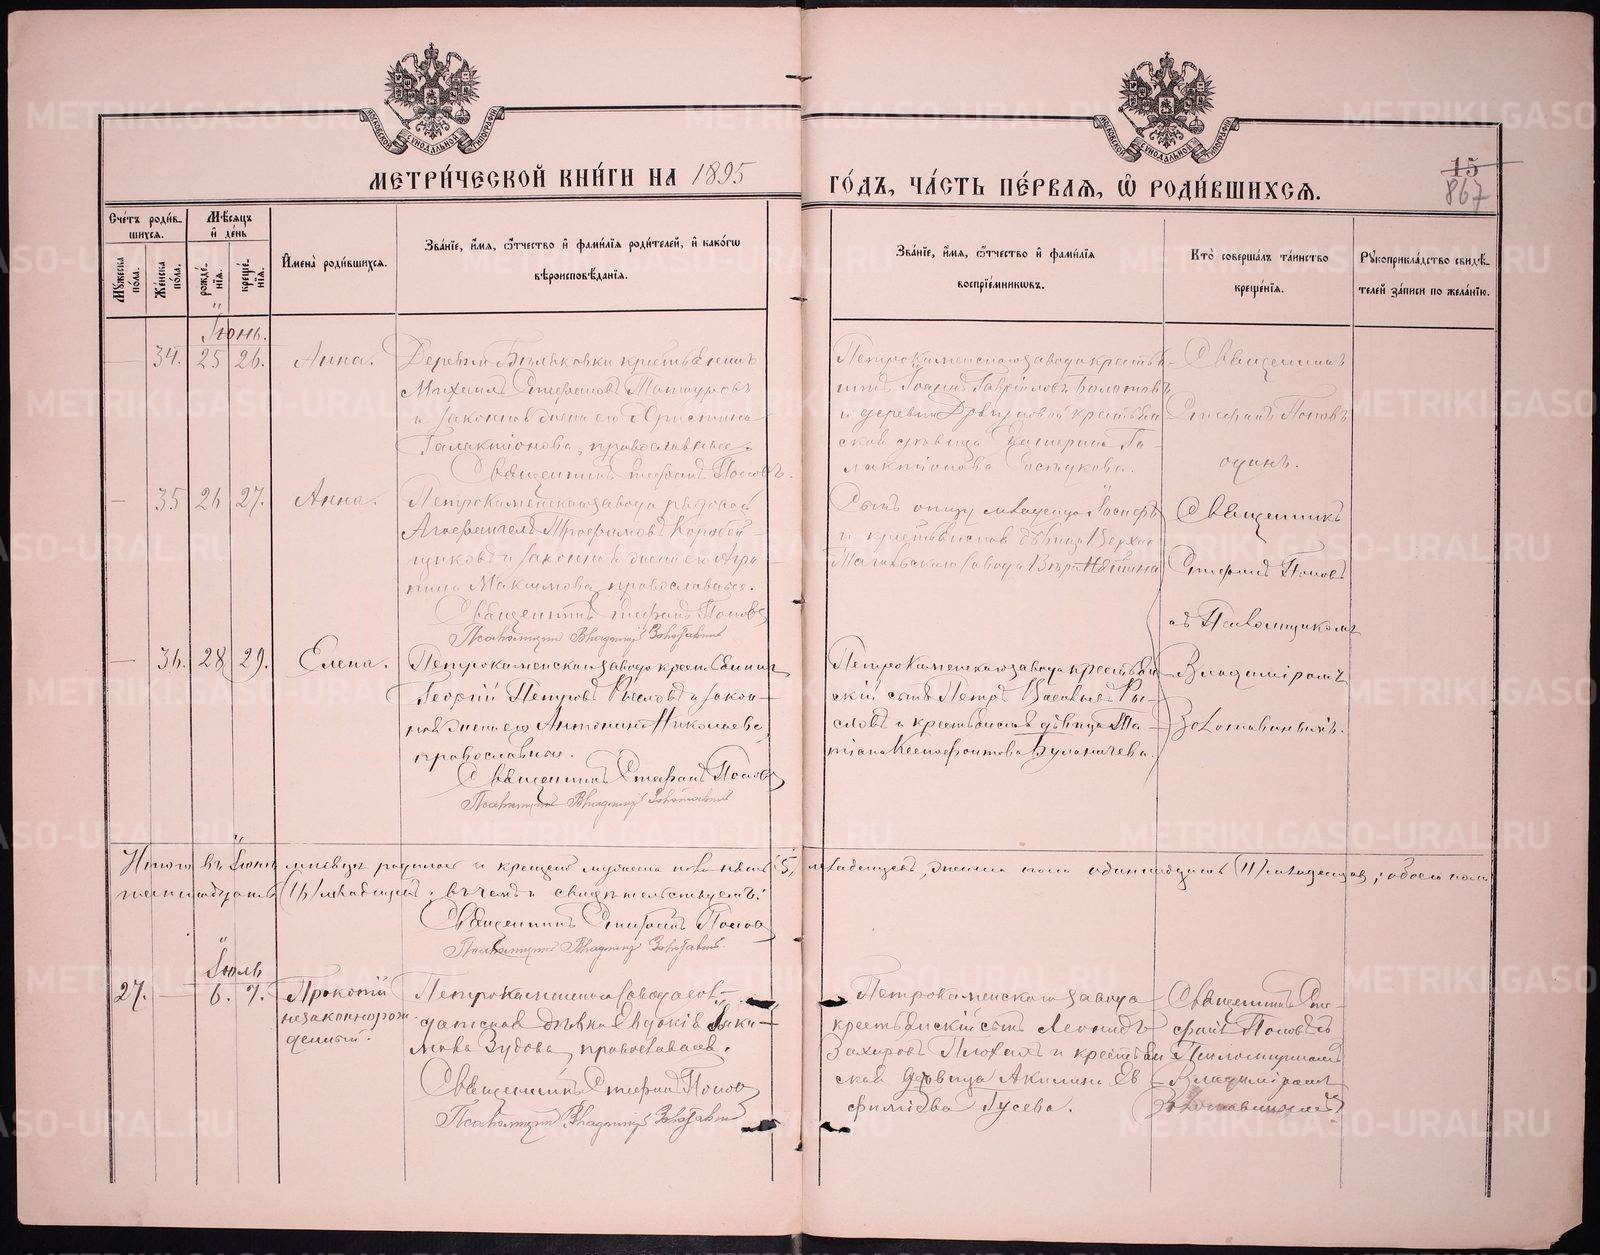 МОСКОВСКОЙ СѴНОДАЛЬНОЙ ТИПОГРАФІИ
МОСКОВСКОЙ СѴНОДАЛЬНОЙ ТИПОГРАФІИ
МЕТРИ́ЧЕСКОЙ КНИ́ГИ НА 1895
ГО́ДЪ, ЧА́СТЬ ПЕ́РВАЯ, Ѡ РОДИ́ВШИХСЯ.
15
867
Сче́тъ роди́в-
шихся.
Мѣсяцъ
и́ де́нь
Мꙋжеска по́ла.
Же́нска по́ла.
рожде́-
нїя.
креще́-
нїя.
И҆мена̀ роди́вшихся.
Зва́нїе, и҆́мя, ѻ҆́тчество и҆ фами́лїя роди́телей, и҆ како́гѡ
вѣроисповѣ́данїя.
Зва́нїе, и҆́мя, ѻ҆́тчество и҆ фами́лїя
воспрїе́мникѡвъ.
Кто̀ соверша́лъ та́инство
креще́нїя.
Рꙋкоприкла́дство свидѣ́-
телей за́писи по жела́нїю.
Іюнь.
— 34. 25 26. Анна.
Деревни Бѣляковки крестьянинъ
Михаилъ Стефановъ
и законная жена его Христина
Галактіонова, православные.
Священникъ Стефанъ Поповъ.
Петрокаменскаго завода кресть-
нинъ Іоаннъ Гавріиловъ Болотовъ
и деревни крестьян
ская дѣвица Екатерина Га-
лактіонова
Священникъ
Стефанъ Поповъ
одинъ.
— 35 26 27. Анна.
Петрокаменскаго завода рядовой
Агаѳангелъ Трофимовъ Коробей-
щиковъ и законная жена его Агри-
пина Максимова, православные.
Священникъ Стефанъ Поповъ
Псаломщикъ Владимиръ
Сынъ отцу младенца Іосифъ
и крестьянская дѣвица Верхне
Тагильскаго завода Вѣра
Священникъ
Стефанъ Поповъ
съ Псаломщикомъ
— 36. 28 29. Елена.
Петрокаменскаго завода крестьянинъ
Георгій Петровъ Рысловъ и закон-
ная жена его Антонина Николаева,
православные.
Священникъ Стефанъ Поповъ
Псаломщикъ Владимиръ
Петрокаменскаго завода крестьян
скій сынъ Петръ Васильевъ Ры-
словъ и крестьянская дѣвица Та-
тіана Ксенофонтова Буланичева.
Владиміромъ
Итого въ Іюнѣ мѣсяцѣ родилось и крещено мужеска пола пять (5) младенцевъ, женска пола одиннадцать (11) младенцевъ; обоего пола
шестнадцать (16) младенцевъ; въ чемъ и свидѣтельствуемъ:
Священникъ Стефанъ Поповъ
Псаломщикъ Владимиръ
Іюль
27. — 6. 7. Прокопій
незаконнорож-
денный.
Петрокаменскаго завода сол-
датская дѣвка Евдокія Іаки-
мова Зудова, православная.
Священникъ Стефанъ Поповъ
Псаломщикъ Владимиръ
Петрокаменскаго завода
крестьянскій сынъ Леонидъ
Захаровъ Плохихъ и крестьян
ская дѣвица Акилина Ев
фиміева Гусева.
Священникъ Сте-
фанъ Поповъ съ
Псаломщикомъ
Владиміромъ
METRIKI.GASO-URAL.RU